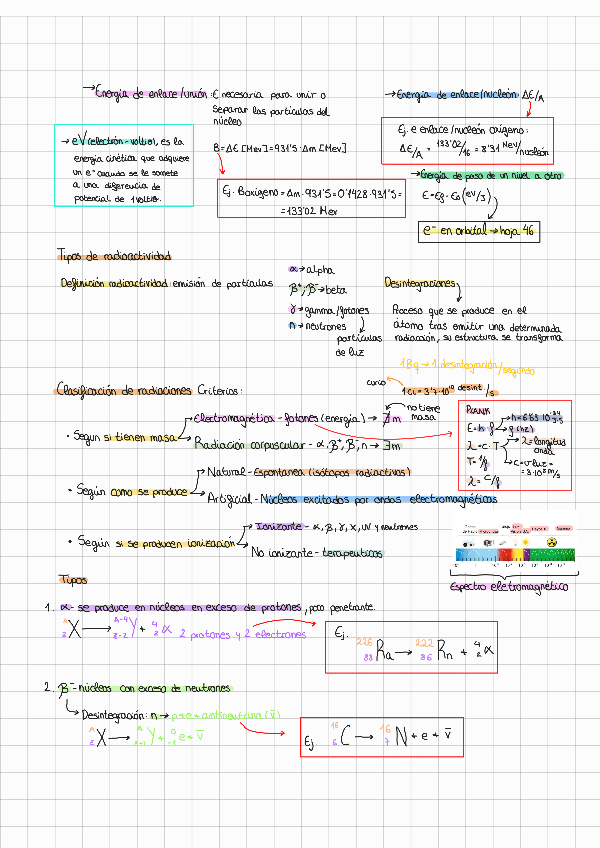 →Energía de enlace/unión: E necesaria para unir o
separar las partículas del
núcleo
→Energía de enlace/nucleón: ΔE/A
→ eV (electrón-voltio), es la
energía cinética que adquiere
un e⁻ cuando se le somete
a una diferencia de
potencial de 1 voltio.
B = ΔE [Mev] = 931'5 · Δm [Mev]
Ej. Boxígeno = Δm · 931'5 = 0'1428 · 931'5 =
= 133'02 Mev
Ej. e enlace/nucleón oxígeno:
ΔE/A = 133'02/16 = 8'31 Mev/nucleón
→Energía de paso de un nivel a otro
E = Ef - E0 (eV/J)
e⁻ en orbital → hoja 46
Tipos de radioactividad
Definición radioactividad: emisión de partículas
α → alpha
β⁺; β⁻ → beta
γ → gamma/fotones
n → neutrones
partículas
de luz
Desintegraciones
Proceso que se produce en el
átomo tras emitir una determinada
radiación, su estructura se transforma
1 Bq → 1 desintegración/segundo
curio
1 Ci = 3'7 · 10¹⁰ desint./s
Clasificación de radiaciones Criterios:
• Según si tienen masa
Electromagnética - fotones (energía) → ∄ m
no tiene
masa
Radiación corpuscular - α, β⁺, β⁻, n → ∃ m
PLANK
E = h · f
h = 6'63 · 10⁻³⁴ J·s
f (hz)
λ = c · T
λ = longitud
onda
T = 1/f
c = v luz =
= 3 · 10⁸ m/s
λ = c/f
• Según como se produce
Natural - Espontanea (isótopos radiactivos)
Artificial - Núcleos excitados por ondas electromagnéticas
• Según si se producen ionización
Ionizante - α, β, γ, X, UV y neutrones
No ionizante - terapeuticos
Espectro eletromagnético
Tipos
1. α - se produce en núcleos en exceso de protones, poco penetrante.
ᴬ₂X → ᴬ⁻⁴₂₋₂Y + ⁴₂α 2 protones y 2 electrones
Ej.
²²⁶₈₈Ra → ²²²₈₆Rn + ⁴₂α
2. β⁻ - núcleos con exceso de neutrones
Desintegración: n → p + e + antineutrino (v̄)
ᴬ₂X → ᴬ₂₊₁Y + ⁰₋₁e + v̄
Ej. ¹⁶₆C → ¹⁶₇N + e + v̄